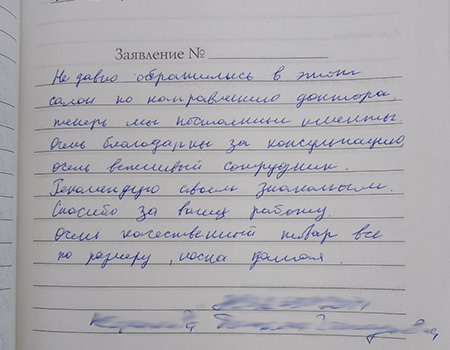 Заявление №
Не давно обратились в этот
салон по направлению доктора,
теперь мы постоянные клиенты
Очень благодарны за консультацию,
очень вежливый сотрудник.
Рекомендую своим знакомым.
Спасибо за вашу работу.
Очень качественный товар все
по размеру, носка долгая.